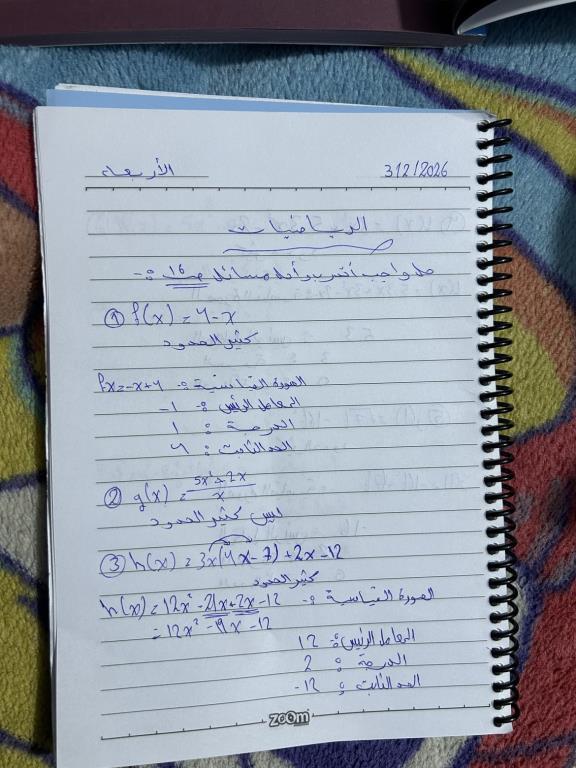 الأربعاء 3/2/2026
الرياضيات
حل واجب أتدرب وأحل مسائل ص16 :-
① f(x) = 4-x
كثير الحدود
الصورة القياسية :- fx=-x+4
المعامل الرئيس :- -1
الدرجة : 1
الحد الثابت : 4
② g(x) = 5x²+2x / x
ليس كثير الحدود
③ h(x) = 3x(4x-7)+2x-12
كثير الحدود
الصورة القياسية :- h(x)=12x²-21x+2x-12
=12x²-19x-12
المعامل الرئيس :- 12
الدرجة : 2
الحد الثابت : -12
zoom